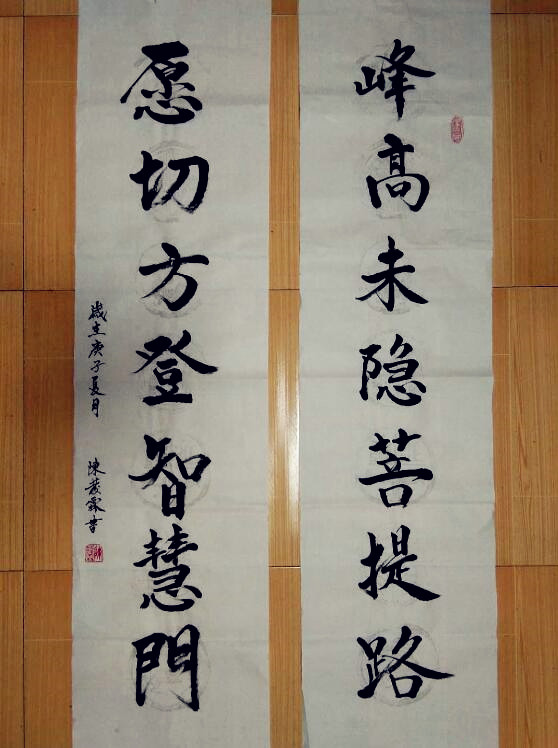 峰高未隐菩提路
愿切方登智慧門
歲在庚子夏月
陳
書